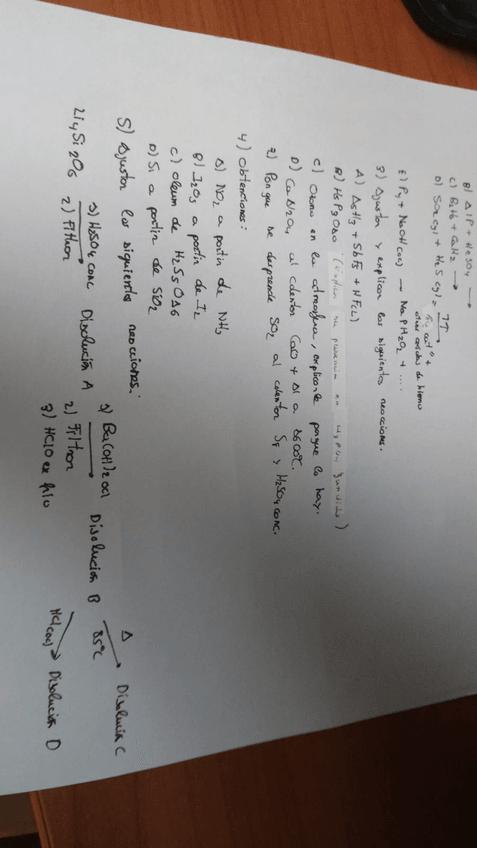 B) AlP + H2SO4 →
C) B2H6 + C2H2 →
D) SO2 (g) + H2S (g)
E) P4 + NaOH (ac) → NaPH2O2 + ....
3) Ajustar y explicar las siguientes reacciones.
A) AsH3 + SbF5 + HF(L)
B) H5P3O10
C) Ozono en la atmosfera, explicando porque lo hay.
D) CaAl2O4 al calentar CaO + Al a
E) Por que se desprende SO2 al calentar S8 y H2SO4 conc.
4) Obtenciones:
A) NO2 a partir de NH3
B) I2O5 a partir de I2
C) oleum de H2S5O16
D) Si a partir de SiO2
5) Ajustar las siguientes reacciones:
Li4Si2O6 1) H2SO4 conc 2) Filtrar Disolución A 1) Ba(OH)2 2) Filtrar 3) HClO en frío Disolución B Δ 85°C Disolución C
HCl(ac) → Disolución D